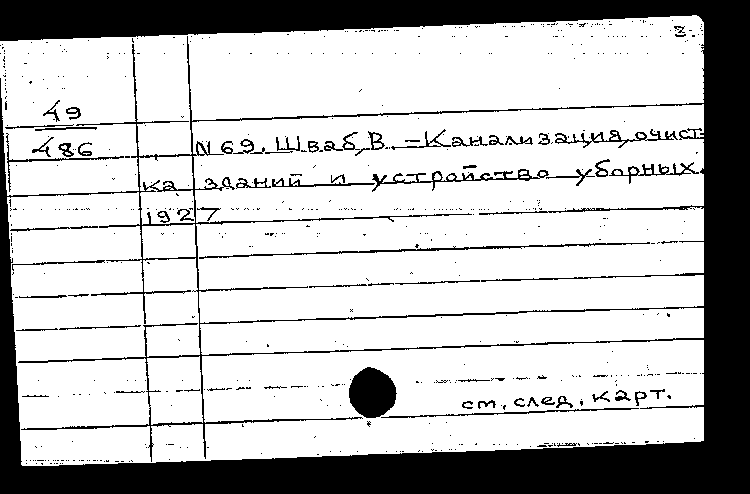 2.
49
486
N 69. Шваб, В. – Канализация, очист-
ка зданий и устройство уборных.
1927
см. след. карт.